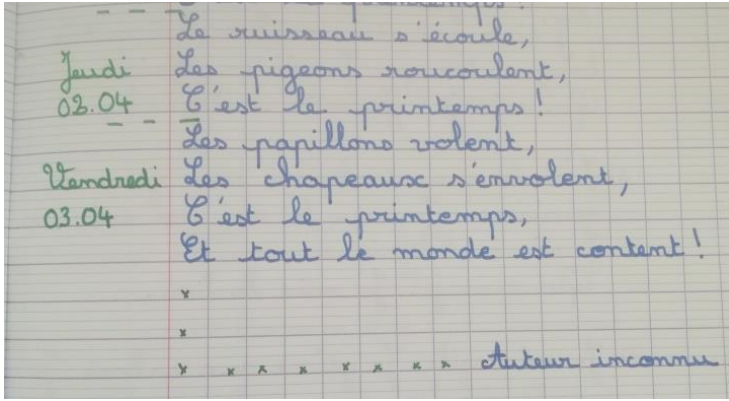 Le ruisseau s'écoule,
Jeudi Les pigeons roucoulent,
02.04 C'est le printemps !
Les papillons volent,
Vendredi Les chapeaux s'envolent,
03.04 C'est le printemps,
Et tout le monde est content !
Auteur inconnu